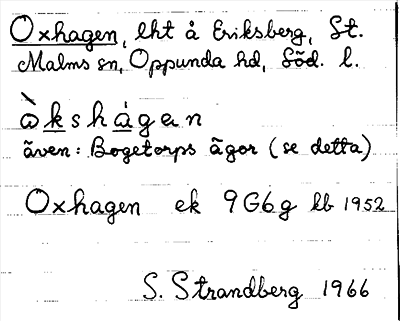 Oxhagen, lht å Eriksberg, St.
Malms sn, Oppunda hd, Söd. l.
ò̀kshágan
även: Bogetorps ägor (se detta)
Oxhagen ek 9G6g lb 1952
S. Strandberg 1966